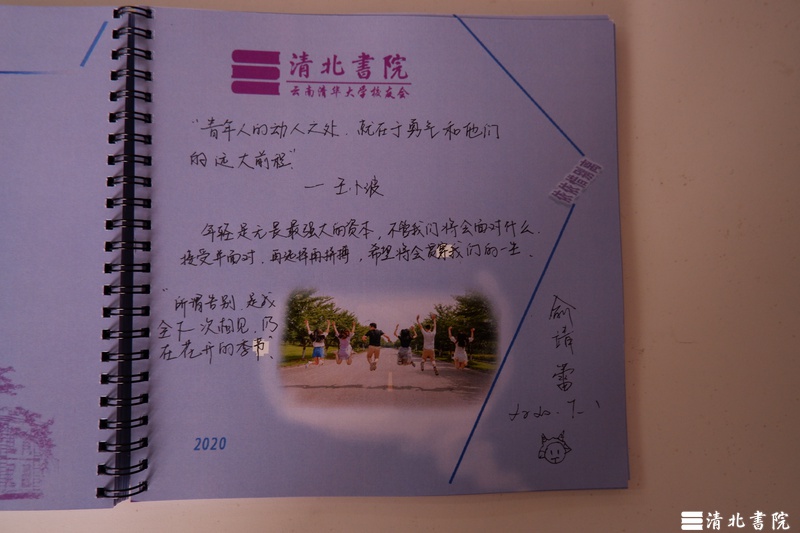 清北書院
云南清华大学校友会
"青年人的动人之处,就在于勇气和他们
的远大前程"
— 王小波
年轻是无畏最强大的资本,不管我们将会面对什么,
接受并面对,再选择再拼搏,希望将会贯穿我们的一生.
"所谓告别,是成
全下一次相见,仍
在花开的季节"
俞靖蕾
2020.7.1
2020
清北書院